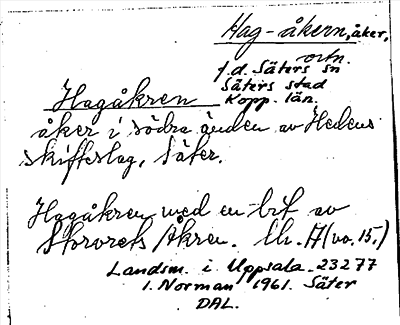 Hag-åkern, åker,
ortn.
f.d. Säters sn
Säters stad
Kopp. län.
Hagåkren
åker i södra änden av Hedens
skifteslag, Säter.
Hagåkren med en bit av
Storvrets Åkren. Lh. A (no. 15.)
Landsm. i Uppsala 23277
I. Norman 1961. Säter
DAL.